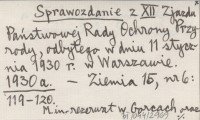 Sprawozdanie z XII Zjazdu
Państwowej Rady Ochrony Przy-
rody, odbytego w dniu 11 stycz-
nia 1930 r. w Warszawie.
1930a. — Ziemia 15, nr 6:
119-120.
M.in. rezerwat w Gorcach oraz